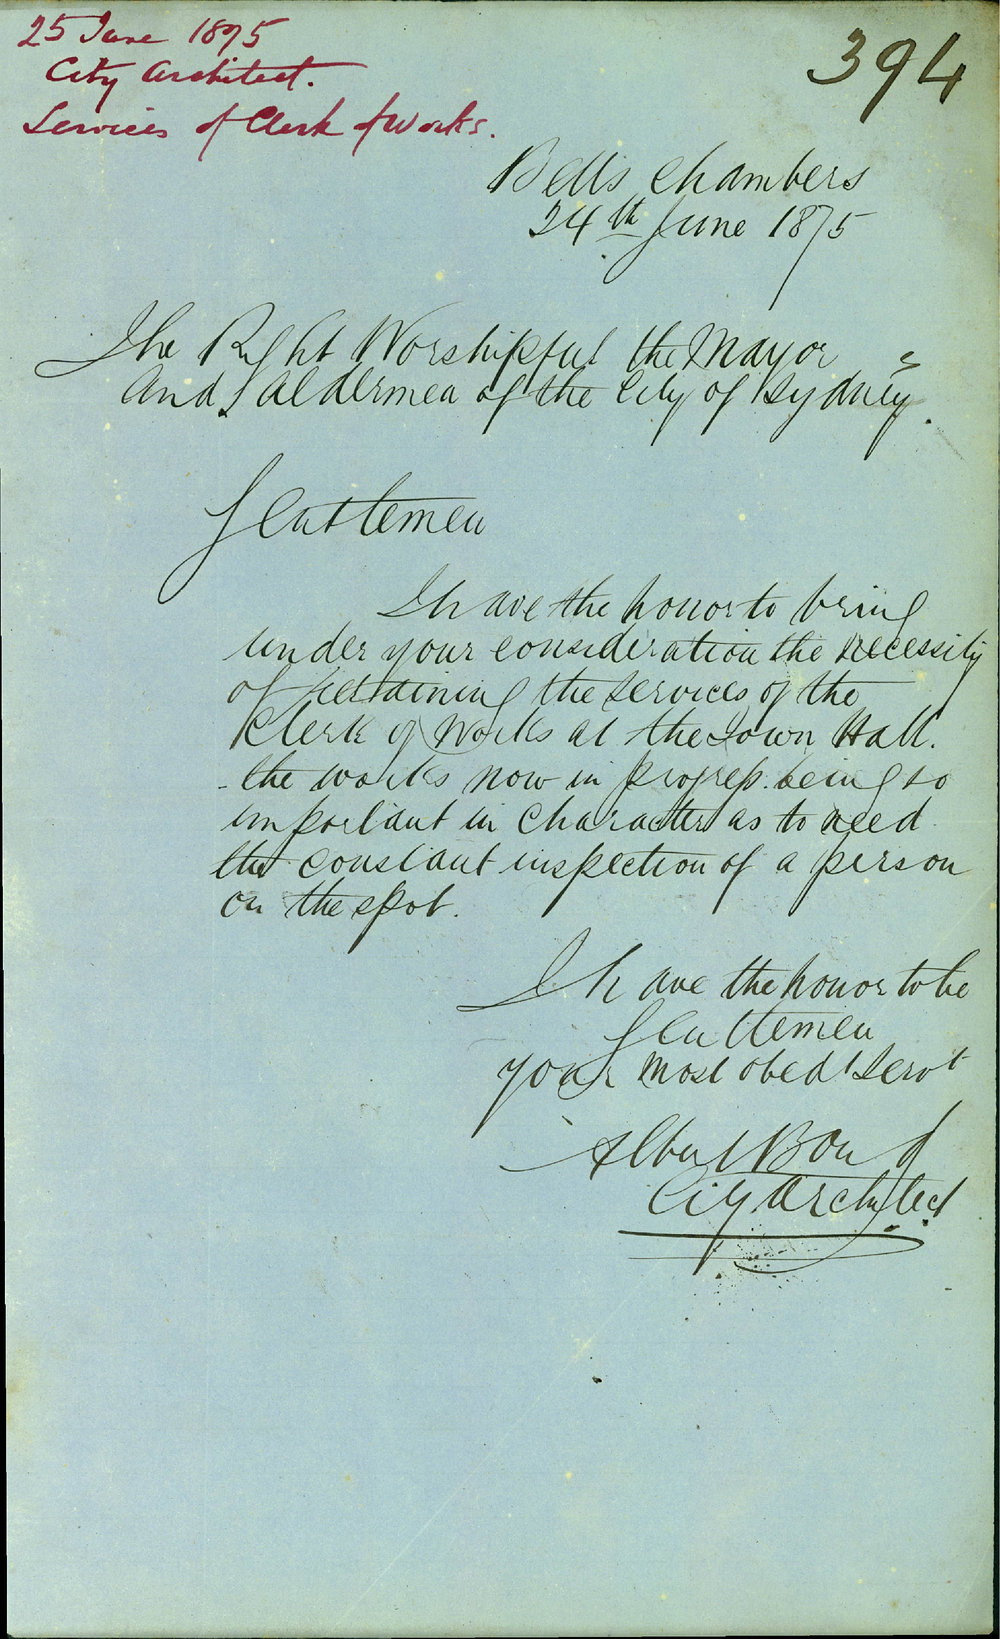 25 June 1875
City Architect.
Services of Clerk of Works.
394
Bells Chambers
24th June 1875
The Right Worshipful the Mayor
and Aldermen of the City of Sydney.
Gentlemen
I have the honor to bring
under your consideration the necessity
of retaining the services of the
Clerk of Works at the Town Hall.
the works now in progress being so
important in character as to need
the constant inspection of a person
on the spot.
I have the honor to be
Gentlemen
your most obedt Servt
Albert Bond
City Architect